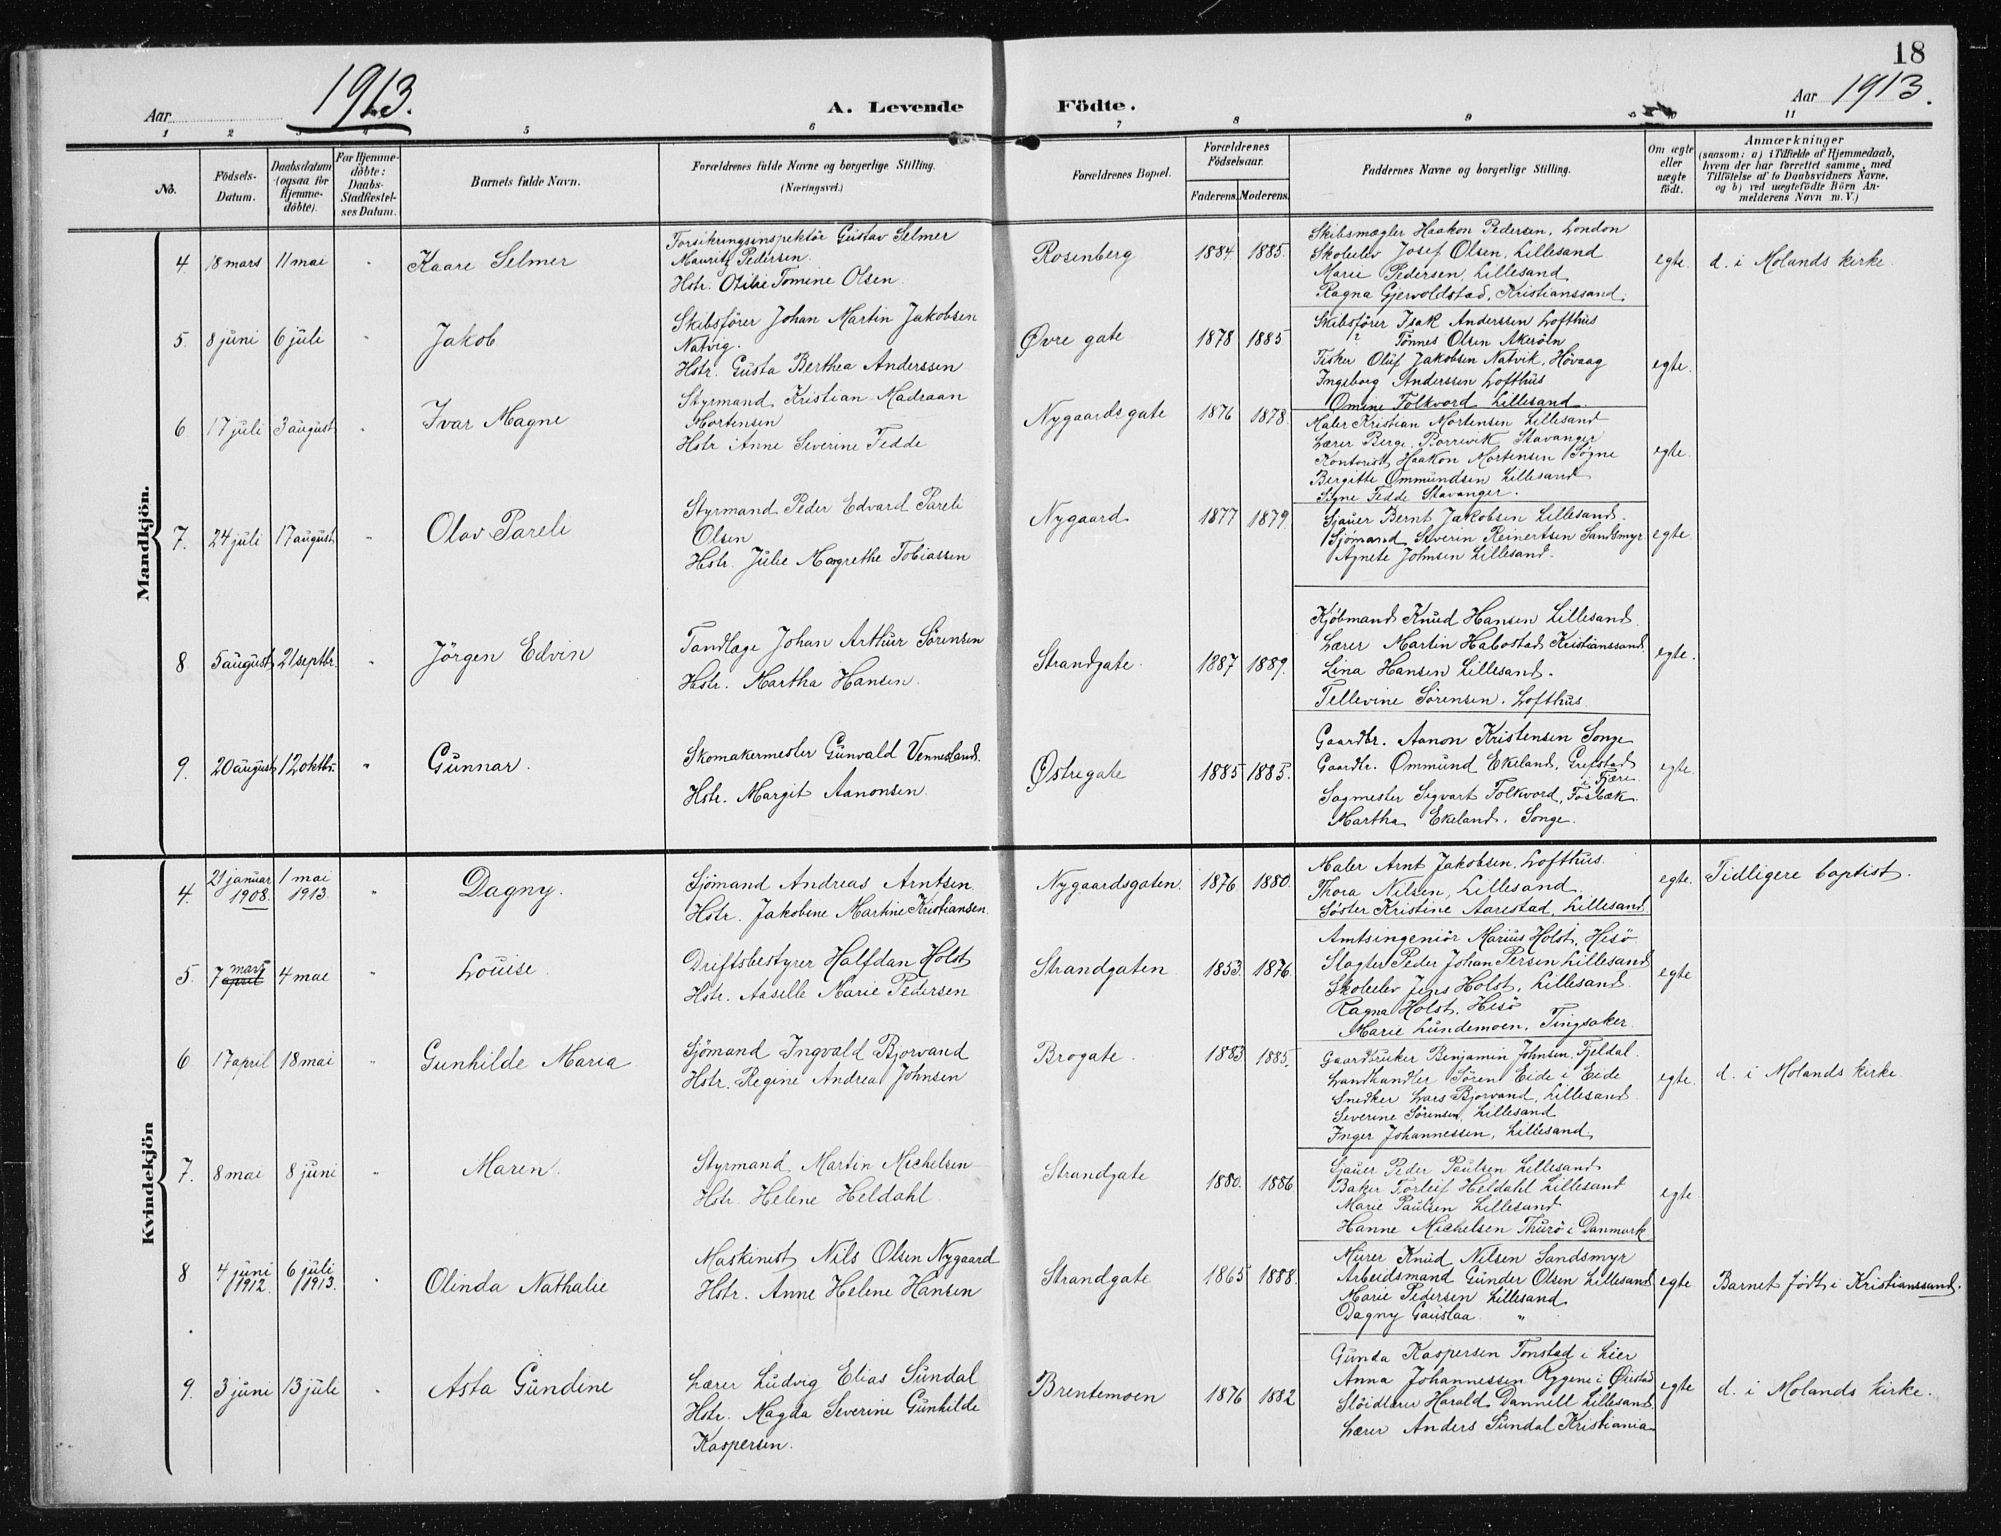 18
Aar 1913.
A. Levende Födte.
Aar 1913.
1 2 3 4 5 6 7 8 9 10 11
No.
Födsels-Datum.
Daabsdatum (ogsaa for Hjemmedöbte).
For Hjemmedöbte: Daabs-Stadfæstelses Datum.
Barnets fulde Navn.
Forældrenes fulde Navne og borgerlige Stilling.
(Næringsvei.)
Forældrenes Bopæl.
Forældrenes Födselsaar.
Faderens. Moderens.
Faddernes Navne og borgerlige Stilling.
Om ægte eller uægte födt.
Anmærkninger
(saasom: a) i Tilfælde af Hjemmedaab, hvem der har forrettet samme, med Tilföielse af to Daabsvidners Navne, og b) ved uægtefödte Börn Anmelderens Navn m. V.)
Mandkjön.
4 18 mars 11 mai " Kaare Selmer
Forsikringsinspektör Gustav Selmer
Mauritz Pedersen.
Hstr. Otilie Tomine Olsen.
Rosenberg 1884. 1885.
Skibsmægler Haakon Pedersen, London
Skoleelev Josef Olsen, Lillesand
Marie Pedersen, Lillesand
Ragna Gjervoldstad, Kristianssand.
egte. d. i Molands kirke.
5. 8 juni 6 juli " Jakob
Skibsförer Johan Martin Jakobsen
Natvig.
Hstr. Gusta Berthea Anderssen
Øvre gate 1878 1885
Skibsförer Isak Anderssen Lofthus
" Tönnes Olsen Akeröln
Fisker Oluf Jakobsen Natvik, Hövaag
Ingeborg Anderssen Lofthus
Omine Folkvord Lillesand.
egte.
6 17 juli 3 august " Ivar Magne
Styrmand Kristian Madraan
Mortensen
Hstr. Anne Severine Tedde
Nygaardsgate 1876 1878.
Maler Kristian Mortensen Lillesand
Lærer Berge Borrevik Stavanger
Kontorist Haakon Mortensen Søgne
Bergitte Ommundsen Lillesand
Signe Tedde Stavanger.
egte.
7. 24 juli 17 august " Olav Pareli
Styrmand Peder Edvard Pareli
Olsen
Hstr. Julie Margrethe Tobiassen
Nygaard 1877 1879.
Sjauer Bernt Jakobsen Lillesand.
Sjömand Severin Reinertsen Sandsmyr
Agnete Johnsen Lillesand.
egte.
8 5 august 21 septbr. " Jörgen Edvin
Tandlæge Johan Arthur Sörensen
Hstr. Martha Hansen.
Strandgate. 1887 1889.
Kjöbmand Knud Hansen Lillesand.
Lærer Martin Kristianssand.
Lina Hansen Lillesand.
Tellevine Sörensen. Lofthus.
egte.
9. 20 august 12 oktbr. " Gunnar.
Skomakermester Gunvald Vennesland.
Hstr. Margit Aanonsen.
Østregate 1885 1885.
Gaardbr. Aanon Kristensen Songe
Gaardbr. Ommund Ekeland, Grefstad
i Fjære.
Sagmester Sigvart Folkvord, Fosbæk.
Martha Ekeland. Songe.
egte.
Kvindekjön
4. 21 januar 1908. 1 mai 1913. " Dagny.
Sjömand Andreas Arntsen.
Hstr. Jakobine Martine Kristiansen.
Nygaardsgaten. 1876 1880.
Maler Arnt Jakobsen. Lofthus.
Thora Nilsen, Lillesand.
Søster Kristine Aarestad, Lillesand
egte. Tidligere baptist.
5. 7 april mars 4 mai " Louise.
Driftsbestyrer Halfdan Holst
Hstr. Aaselle Marie Pedersen
Strandgaten 1853. 1876.
Amtsingeniör Marius Holst, Hisö
Slagter Peder Johan Persen Lillesand
Skoleelev Jens Holst, Lillesand.
Ragna Holst, Hisö
Marie Lundemoen, Tingsaker
egte
6 17 april 18 mai " Gunhilde Maria
Sjömand Ingvald Bjorvand
Hstr. Regine Andrea Johnsen
Brogate. 1883 1885.
Gaardbruker Benjamin Johnsen, Fjeldal.
Landhandler Sören Eide i Eide
Snedker Lars Bjorvand, Lillesand.
Severine Sörensen, Lillesand
Inger Johannessen, Lillesand
egte. d. i Molands kirke.
7. 8 mai 8 juni " Maren.
Styrmand Martin Michelsen
Hstr. Helene Heldahl.
Strandgate 1880. 1886.
Sjauer Peder Paulsen Lillesand
Baker Torleif Heldahl Lillesand
Marie Paulsen Lillesand
Hanne Michelsen Thurö i Danmark
egte.
8 4 juni 1912. 6 juli 1913. " Olinda Nathalie
Maskinist Nils Olsen Nygaard
Hstr. Anne Helene Hansen
Strandgate 1865 1888.
Murer Knud Nilsen Sandsmyr
Arbeidsmand Gunder Olsen Lillesand
Marie Pedersen Lillesand
Dagny Gauslaa "
egte Barnet født i Kristianssand.
9. 3 juni 13 juli " Asta Gundine
Lærer Ludvig Elias Sundal
Hstr. Magda Severine Gunhilde
Kaspersen.
Brentemoen 1876 1882
Gunda Kaspersen Tonstad i Lier
Anna Johannessen Rygene i Øiestad
Slöidlærer Harald Dannell Lillesand.
Lærer Anders Sundal Kristiania
egte d. i Molands kirke.